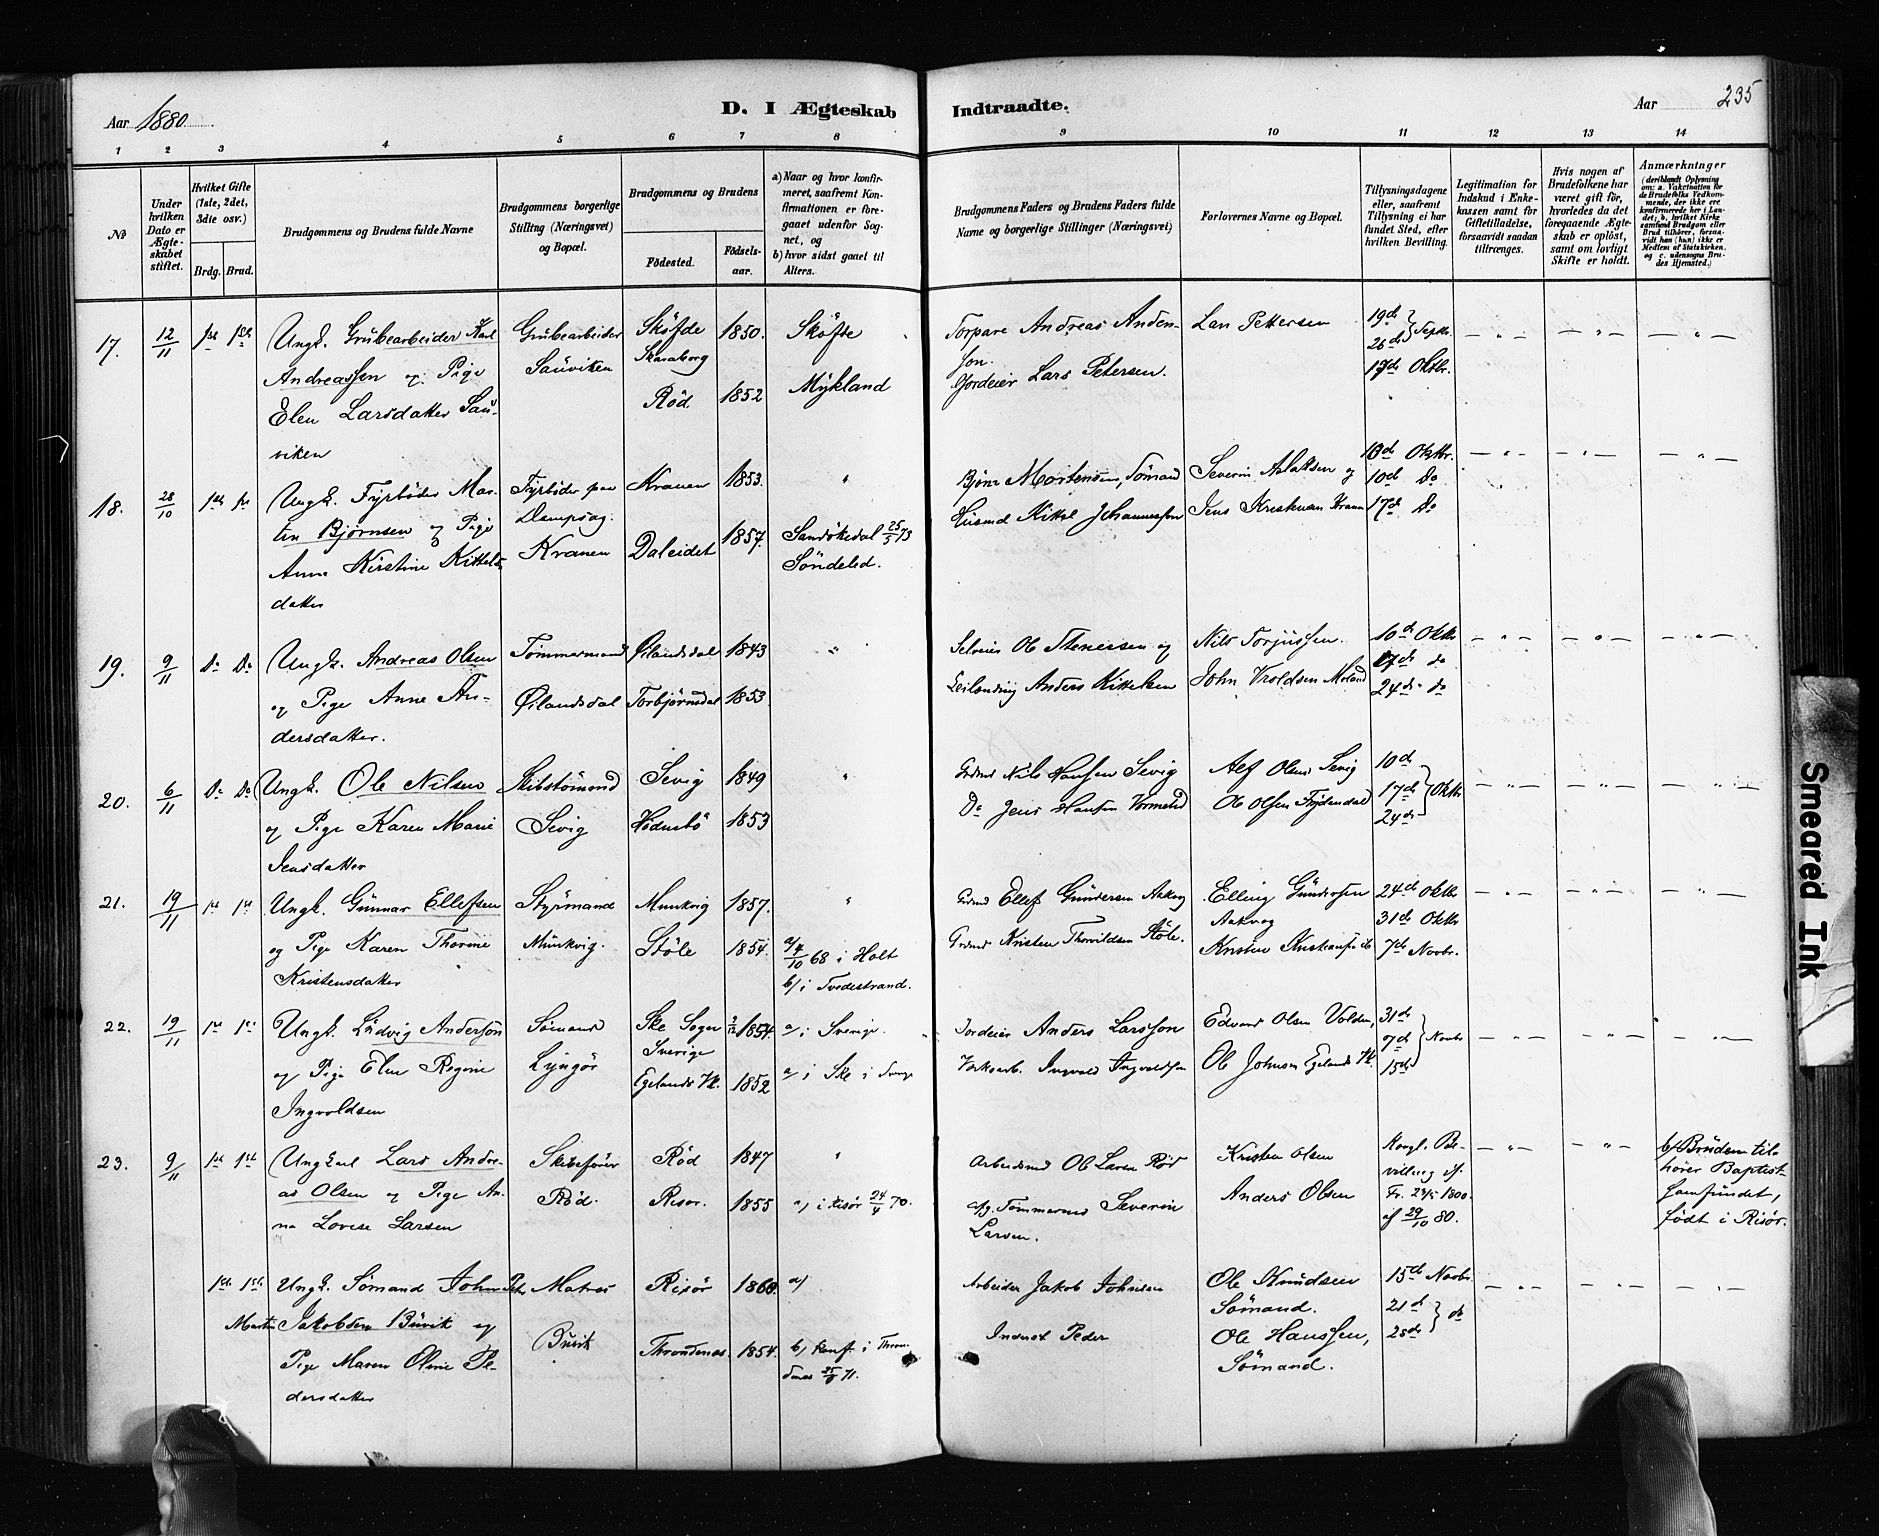 Aar 1880
D. I Ægteskab Indtraadte.
Aar
235
1 2 3 4 5 6 7 8 9 10 11 12 13 14
No
Under hvilken Dato er Ægteskabet stiftet.
Hvilket Gifte (1ste, 2det, 3die osv.)
Brdg. Brud.
Brudgommens og Brudens fulde Navne
Brudgommens borgerlige Stilling (Næringsvei) og Bopæl.
Brudgommens og Brudens
Fødested.
Fødsels-aar.
a) Naar og hvor konfirmeret, saafremt Konfirmationen er foregaaet udenfor Sognet, og
b) hvor sidst gaaet til Alters.
Brudgommens Faders og Brudens Faders fulde Navne og borgerlige Stillinger (Næringsvei)
Forlovernes Navne og Bopæl.
Tillysningsdagene eller, saafremt Tillysning ei har fundet Sted, efter hvilken Bevilling.
Legitimation for Indskud i Enkekassen samt for Giftetilladelse, forsaavidt saadan tiltrænges.
Hvis nogen af Brudefolkene har været gift før, hvorledes da det foregaaende Ægteskab er opløst, samt om lovligt Skifte er holdt.
Anmærkninger (deriblandt Oplysning om: a. Vakcination for de Brudefolks Vedkommende, der ikke ere konfirmerede her i Landet; b. hvilket Kirkesamfund Brudgom eller Brud tilhører, forsaavidt han (hun) ikke er Medlem af Statskirken, og c. udensogns Brudes Hjemsted.)
17. 12/11 1ste 1ste Ungk. Grubearbeider Karl Grubearbeider Skøfde 1850. Skøfde Torpare Andreas Anden- Lars Pettersen 19de } Septbr.
Andreassen og Pige Sauviken Skaraborg son. 26de
Elen Larsdatter Sau- Rød 1852 Mykland Gordeier Lars Petersen. Oktbr.
viken
18. 28/10 1ste Ungk. Fyrbøder Mar- Fyrbøder paa Kranen 1853. Bjørn Mortensen, Sømand Severin Aslaksen og Oktbr.
tin Bjørnsen og Pige Dampsag. Husmd Kittel Johannessen Jens Kristensen Kranen 10de Do
Anne Kirstine Kittels- Kranen Daleidet 1857. Sandøkedal 25/5 73 17de Do
datter Søndeled.
19. 9/11 Do Do Ungk. Andreas Olsen Tømmermand Øilandsdal 1843 Selveier Ole Stenersen og Nils Torjussen. 10de Oktbr
og Pige Anne An- Øilandsdal Torbjørnsdal 1853 Leilending Anders Kittelsen John Vroldsen Moland 17de do
dersdatter. 24de do
20. 6/11 Do Do Ungk. Ole Nilsen Skibstømmd Sevig 1849 Grdmd Nils Hansen Sevig Alf Olsen Sevig 10de
og Pige Karen Marie Sevig Hødnebø 1853 Do Jens Hansen Ole Olsen Frydendal 17de } Oktbr
Jensdatter 24de
21. 19/11 1ste 1ste Ungk. Gunnar Ellefsen Styrmand Munkvig 1857. Grdmd Ellef Gundersen Aakvog Elling Gundersen 24de Oktbr
og Pige Karen Thorine Munkvig. Støle 1854. a/ 4/10 68 i Holt Grdmd Kristen Thorvildsen Støle. Aakvog 31de Oktbr
Kristensdatter b/ i Tvedestrand. Kristen 7de Novbr.
22. 19/11 1ste 1ste Ungk. Ludvig Anderson Sømand Ske Sogn 1854. a/ i Sverige. Jordeier Anders Larsson Edvard Olsen Volden, 31de
og Pige Elen Regine Lyngør Sverige a/ i Ske i Ole Johnsen Egelands Vk. 7de } Novbr
Ingvoldsen Egelands Vk. 1852 Værksarb. Ingvald Ingvaldsen
23. 9/11 1ste 1ste Ungkarl Lars Andre- Skibsfører Rød 1847 Arbeidsmd Ole Larsen Rød Kristen Olsen Kongl. Be- b/ Bruden til-
as Olsen og Pige An- Rød. Risør. 1855 a/ i Risør 24/4 70. afg. Tømmermd Severin Anders Olsen villing af hører Baptist-
na Lovise Larsen Larsen. Fr. 23/5 1800. samfundet,
af 29/10 80. født i Risør.
1ste 1ste Ungk. Sømand Johan Matros Risør a/ Arbeider Jakob Johnsen Ole Knudsen 15de Novbr
Martin Jakobsen Buvik og Buvik Throndenæs. 1854. b/ konf. i Inderst Peder Sømand. 21de } do
Pige Maren Oline Pe- 71. Ole Hanssen, 28de
dersdatter Sømand.
Smeared Ink